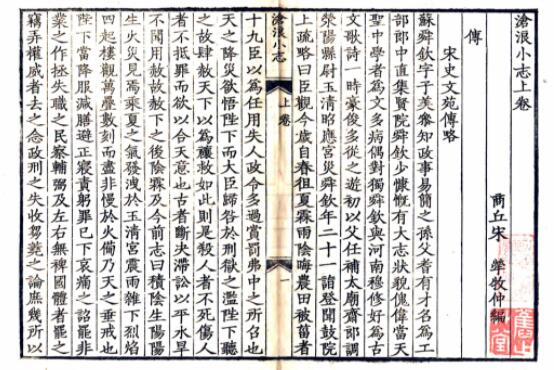 滄浪小志上卷
商丘宋 犖牧仲編
傳
宋史文苑傳略
蘇舜欽字子美參知政事易簡之孫父耆有才名為工
部郎中直集賢院舜欽少慷慨有大志狀貌傀偉當天
聖中學者為文多病偶對獨舜欽與河南穆修好為古
文歌詩一時豪俊多從之遊初以父任補太廟齋郎調
滎陽縣尉玉清昭應宮災舜欽年二十一詣登聞鼓院
上疏略曰臣觀今歲自春徂夏霖雨陰晦農田被菑者
滄浪小志
上卷
一
十九臣以為任用失人政令多過賞罰弗中之所召也
天之降災欲悟陛下而大臣歸咎於刑獄之濫陛下聽
之故肆赦天下以為禳救如此則是殺人者不死傷人
者不抵罪而欲以合天意也古者斷決滯訟以平水旱
不聞用赦故赦下之後陰霖及今前志曰積陰生陽陽
生火災見焉乘夏之氣發洩於玉清宮震雨雜下烈焰
四起樓觀萬疊數刻而盡非慢於火備乃天之垂戒也
陛下當降服減膳避正寢責躬罪已下哀痛之詔罷非
業之作拯失職之民察輔弼及左右無裨國體者罷之
竊弄權威者去之念政刑之失收芻蕘之論庶幾所以